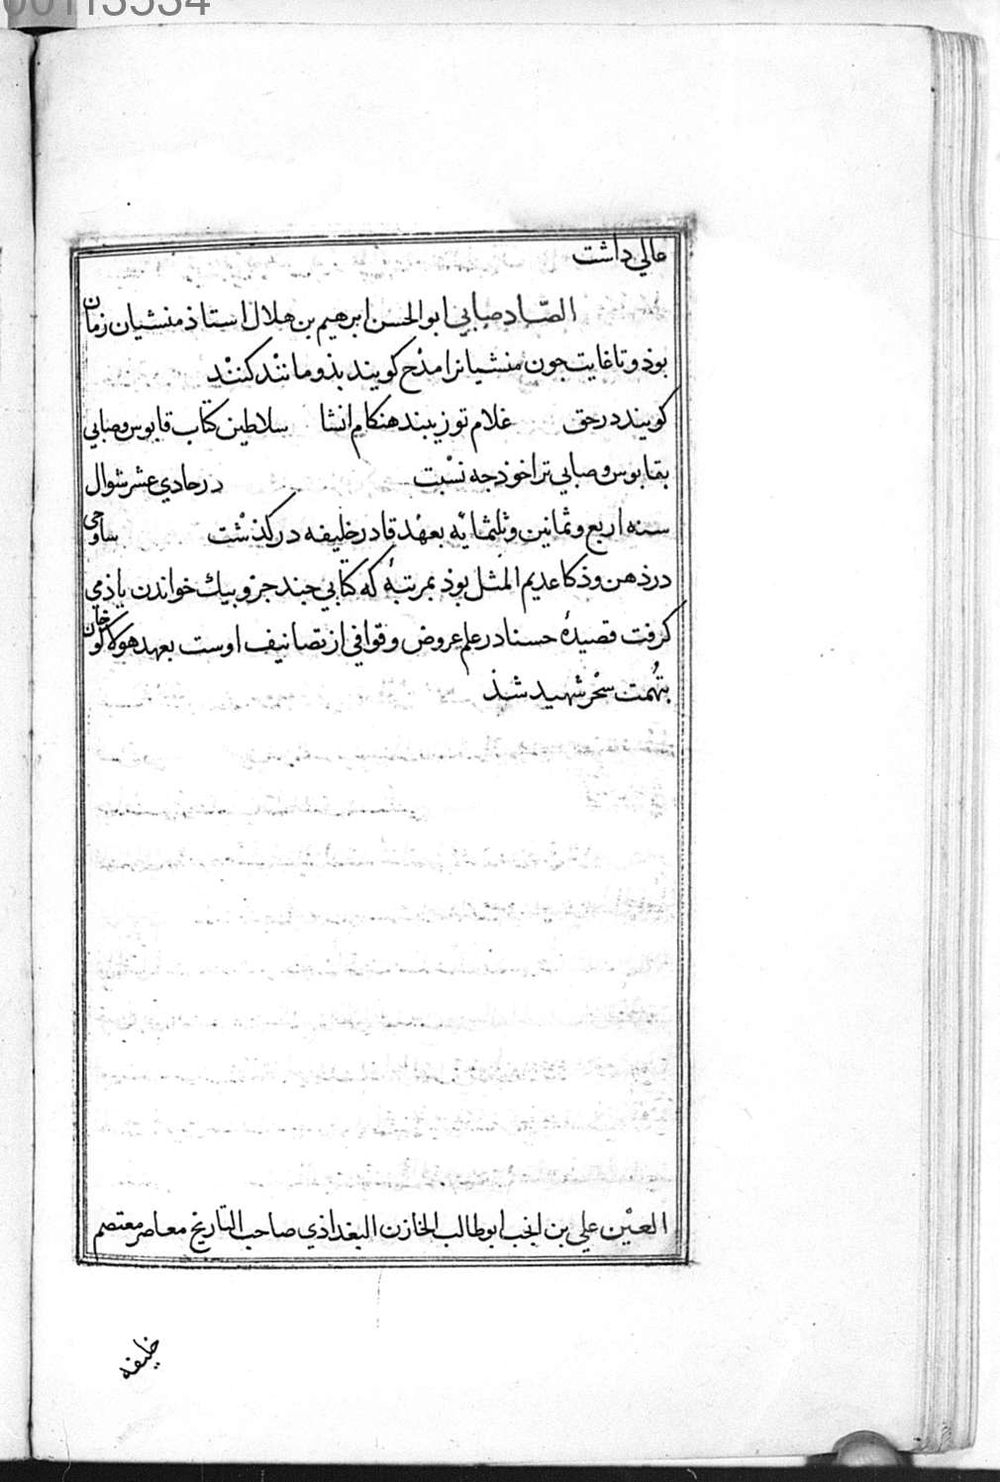 00113534
عالی داشت
الصّاد صابی ابو الحسن ابرهیم بن هلال استاذ منشیان زمان
بوذ و تا غایت جون منشیانرا مدح کویند بذو مانند کنند
کویند در حق غلام تو زیبند هنکام انشا سلاطین کتاب قابوس و صابی
بقابوس و صابی ترا خوذ جه نسبت در حادی عشر شوال
سنه اربع و ثمانین و ثلثمایه بعهد قادر خلیفه در کذشت ساوجی
در ذهن و ذکا عدیم المثل بوذ بمرتبهٔ که کتابی جند جزو بیك خواندن یاذ می
کرفت قصیدهٔ حسنا در علم عروض و قوافی از تصانیف اوست بعهد هولاکو خان
بتهمت سحر شهید شذ
العین علی بن انجب ابو طالب الخازن البغداذی صاحب التاریخ معاصر معتصم
خلیفه